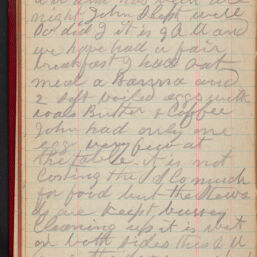 night John Slept well
So did I it is 9 A M and
we have had a fair
breakfast I had oat
meal a Banana and
2 soft boiled eggs with
Butter & Coffee
John had only one
egg very few at
the table it is not
Costing the S S Co much
for food but the Stewa
ds are kept bussy
Cleaning up it is wet
on both sides this A M